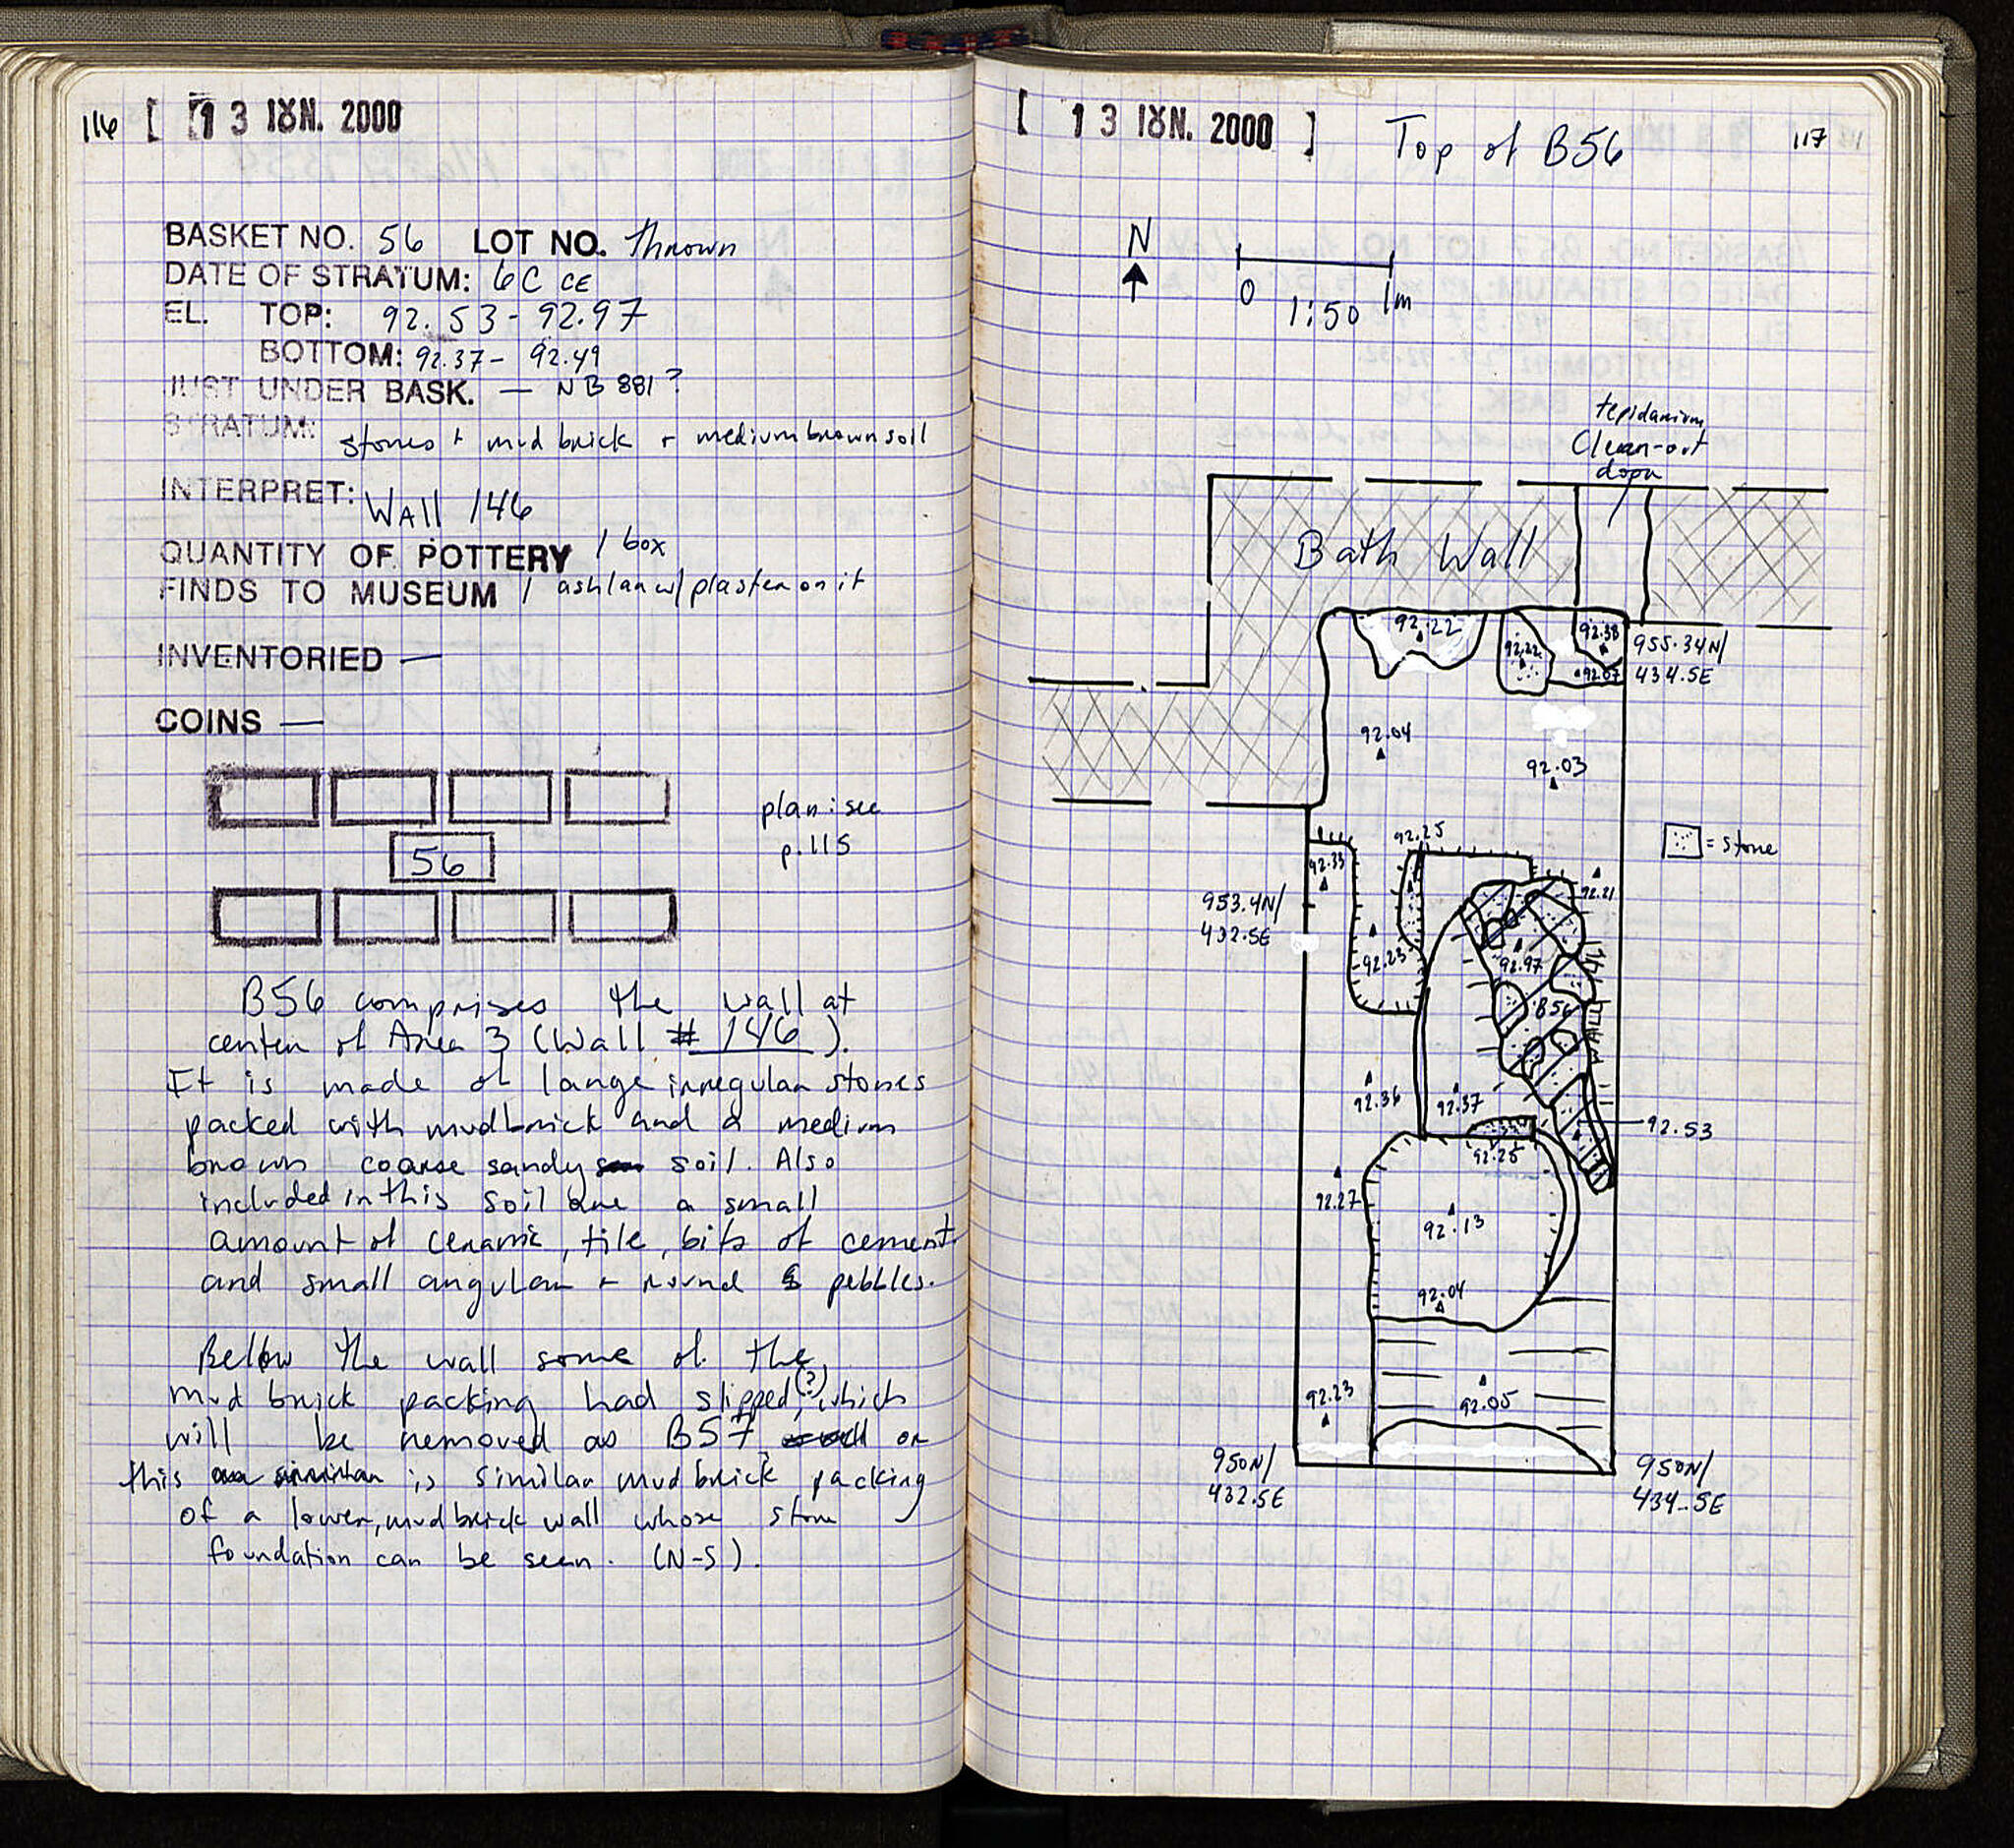 116 [ 13 ΙΟΥΝ. 2000
BASKET NO. 56 LOT NO. thrown
DATE OF STRATUM: 6C CE
EL. TOP: 92.53-92.97
BOTTOM: 92.37- 92.49
JUST UNDER BASK. — NB 881?
STRATUM: stones + mud brick + medium brown soil
INTERPRET: Wall 146
QUANTITY OF POTTERY 1 box
FINDS TO MUSEUM 1 ashlar w/ plaster on it
INVENTORIED —
COINS —
plan: see
p.115
56
B56 comprises the wall at
center of Area 3 (Wall # 146).
It is made of large irregular stones
packed with mudbrick and a medium
brown coarse sandy soil. Also
included in this soil are a small
amount of ceramic, tile, bits of cement
and small angular + round pebbles.
Below the wall some of the
mud brick packing had slipped(?), which
will be removed as B57, or
this is similar mud brick packing
of a lower, mudbrick wall whose stone
foundation can be seen. (N-S).
[ 13 ΙΟΥΝ. 2000 ] Top of B56 117
N
0 1m
1:50
tepidarium
Clean-out
door
Bath Wall
92.22
92.22
92.38
92.07
955.34N/
434.5E
92.04
92.03
= stone
92.33
92.25
92.21
953.4N/
432.5E
92.23
92.97
B56
92.36
92.37
92.53
92.25
92.27
92.13
92.04
92.23
92.05
950N/
432.5E
950N/
434.5E